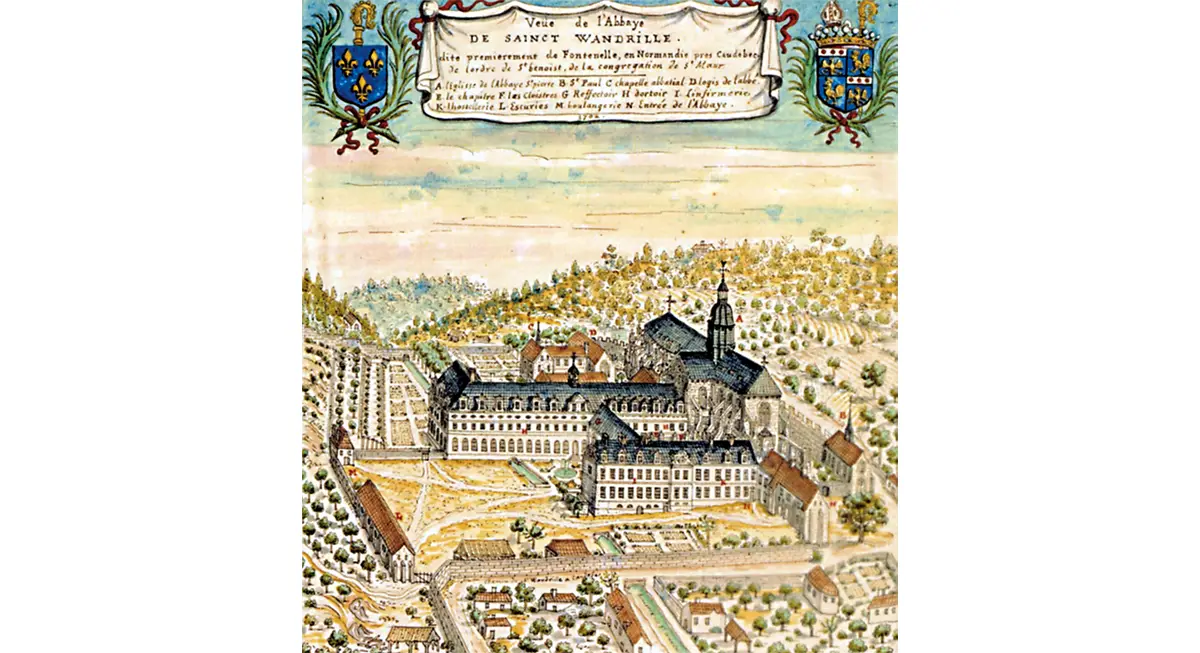 Veüe de l'Abbaye
DE SAINCT WANDRILLE.
dite premierement de Fontenelle, en Normandie pres Caudebec
de lordre de St benoist, de la congregation de St Maur
A. l'Eglisse de l'Abbaye St pierre B. St Paul C chapelle abbatial D logis de labbé.
E. le chapitre F. les Cloistres G Reffectoir H dortoir I. linfirmerie.
K. lhostellerie L. Escuries M boulangerie N Entrée de l'Abbaye.
1702
A
C
D
B
H